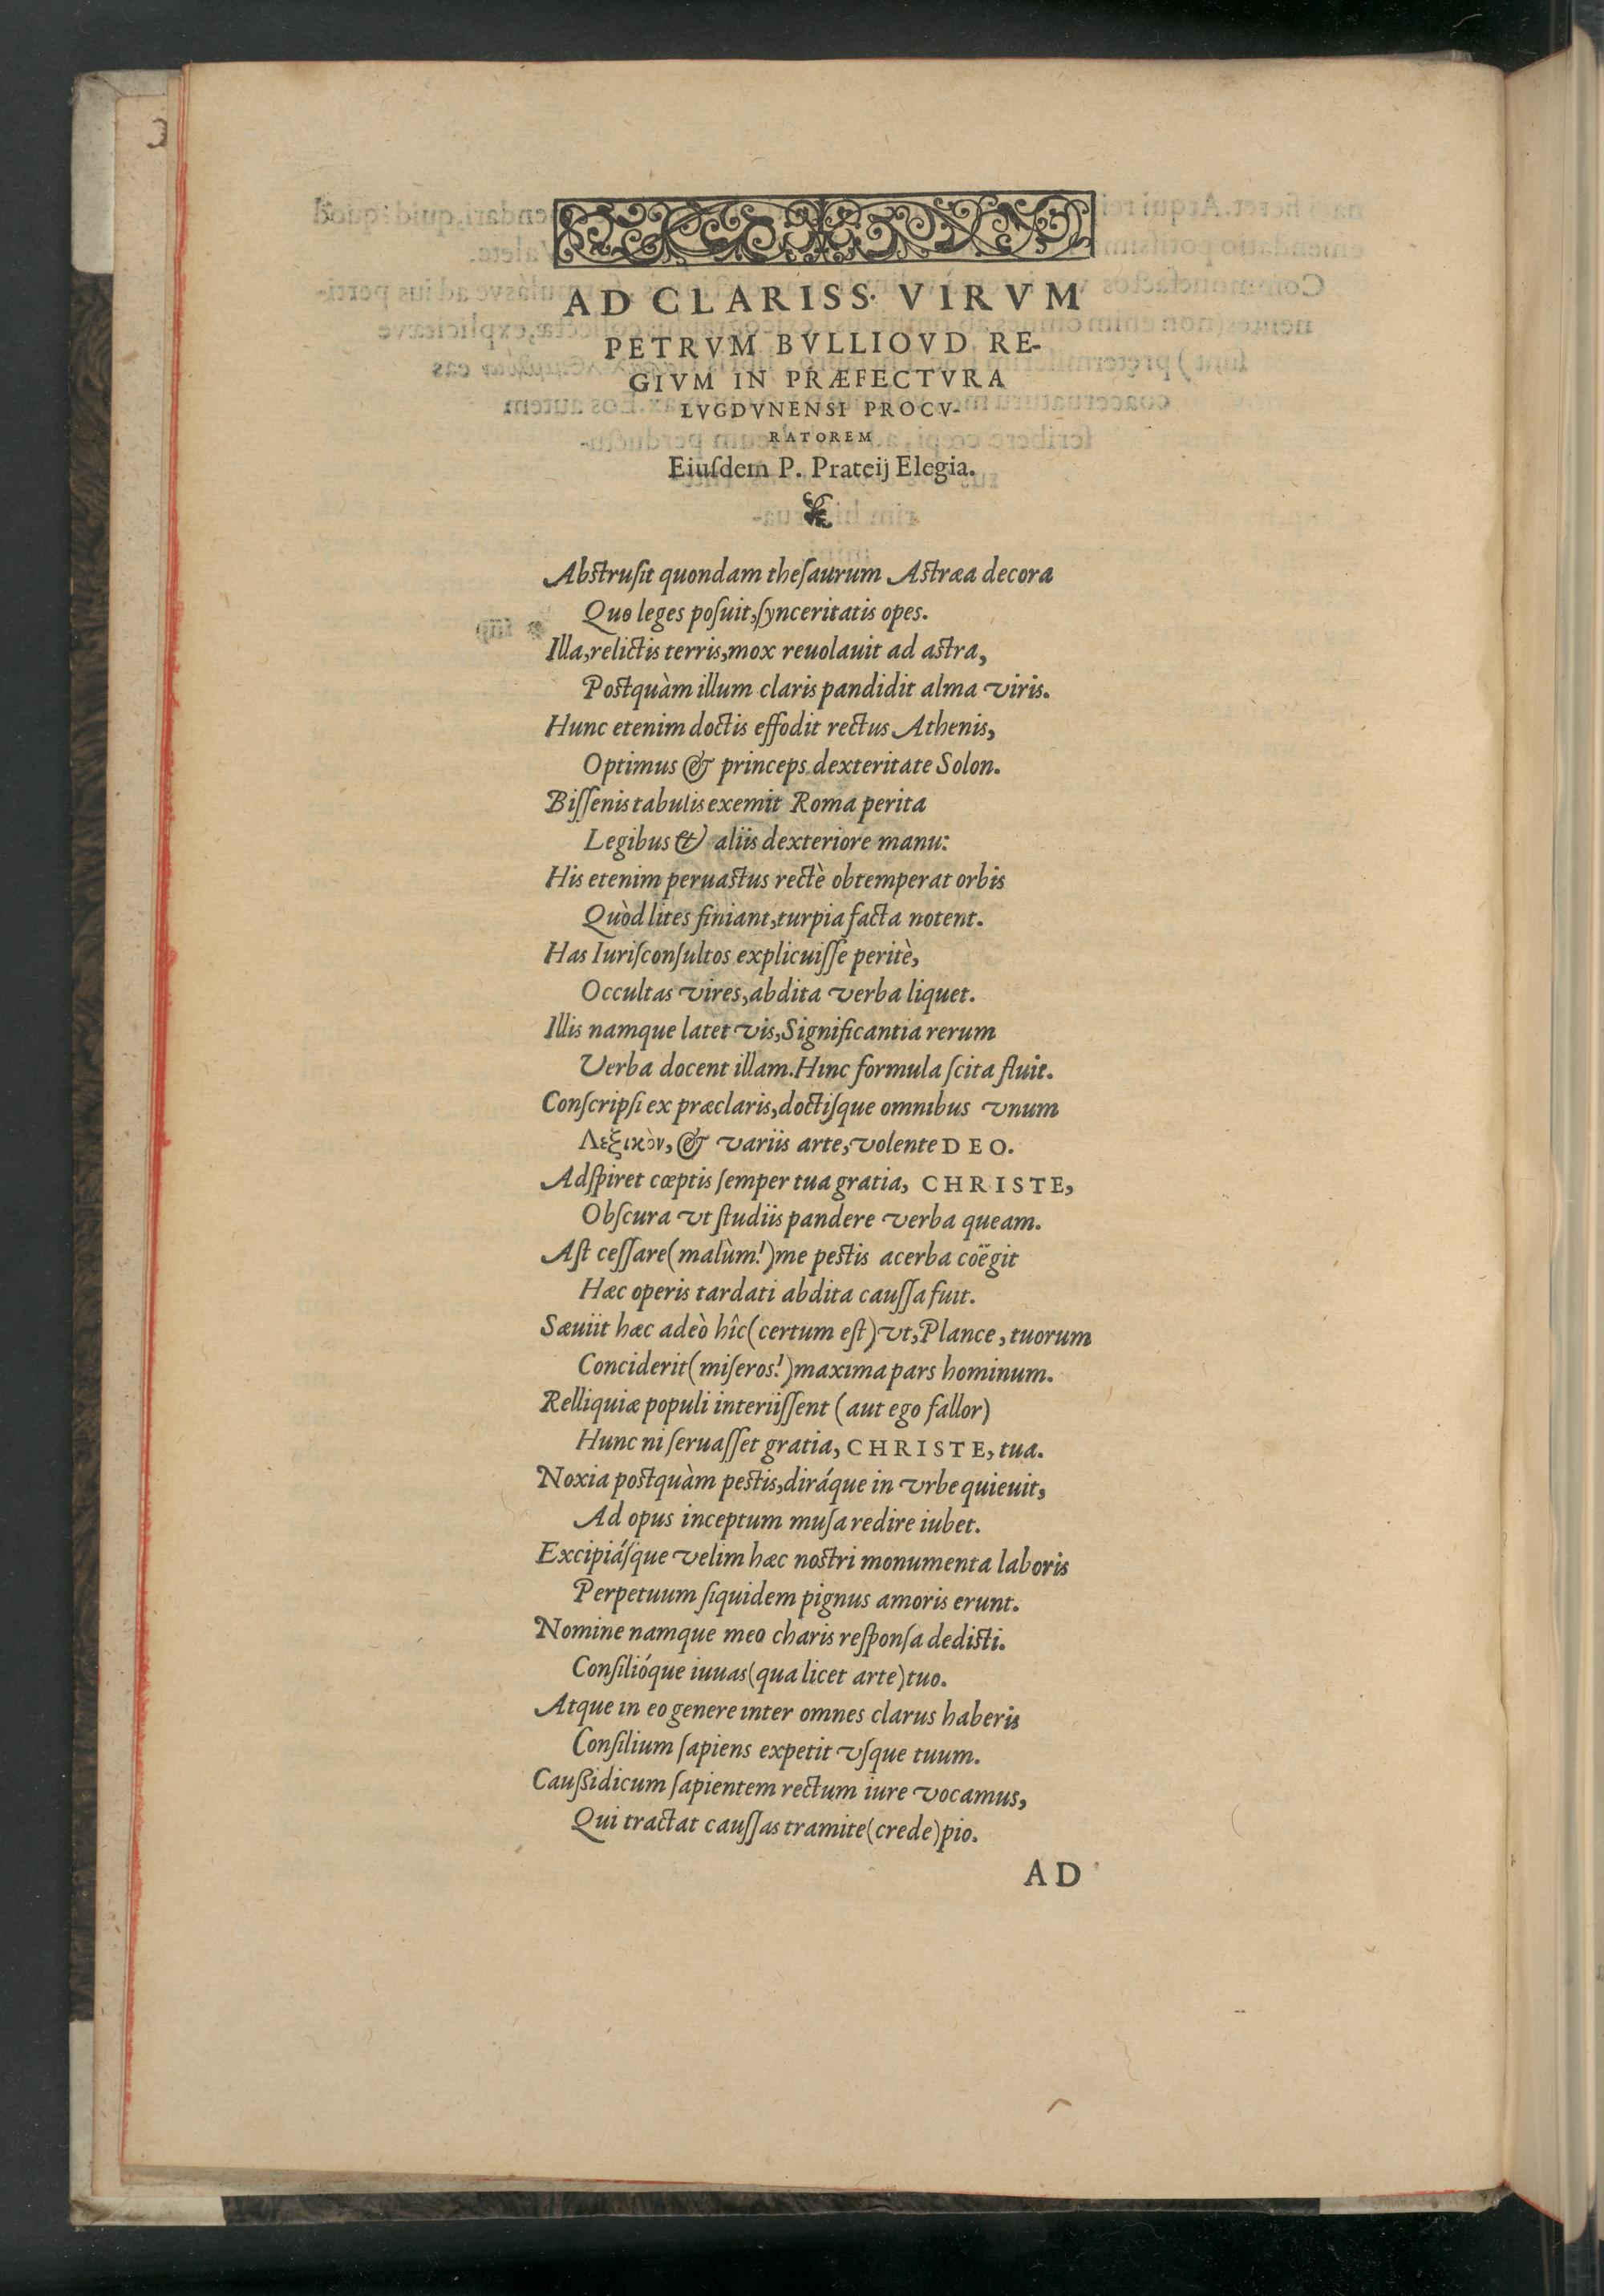 AD CLARISS. VIRVM
PETRVM BVLLIOVD RE-
GIVM IN PRÆFECTVRA
LVGDVNENSI PROCV-
RATOREM
Eiuſdem P. Prateij Elegia.
Abſtruſit quondam theſaurum Aſtræa decora
Quo leges poſuit, ſynceritatis opes.
Illa, relictis terris, mox reuolauit ad aſtra,
Poſtquàm illum claris pandidit alma viris.
Hunc etenim doctis effodit rectus Athenis,
Optimus & princeps dexteritate Solon.
Biſſenis tabulis exemit Roma perita
Legibus & aliis dexteriore manu:
His etenim peruaſtus rectè obtemperat orbis
Quòd lites finiant, turpia facta notent.
Has Iuriſconſultos explicuiſſe peritè,
Occultas vires, abdita verba liquet.
Illis namque latet vis, Significantia rerum
Verba docent illam. Hinc formula ſcita fluit.
Conſcripſi ex præclaris, doctiſque omnibus vnum
Λεξικὸν, & variis arte, volente DEO.
Adſpiret cœptis ſemper tua gratia, CHRISTE,
Obſcura vt ſtudiis pandere verba queam.
Aſt ceſſare (malùm!) me peſtis acerba coëgit
Hæc operis tardati abdita cauſſa fuit.
Sæuiit hæc adeò hîc (certum eſt) vt, Plance, tuorum
Conciderit (miſeros!) maxima pars hominum.
Relliquiæ populi interiiſſent (aut ego fallor)
Hunc ni ſeruaſſet gratia, CHRISTE, tua.
Noxia poſtquàm peſtis, diráque in vrbe quieuit,
Ad opus inceptum muſa redire iubet.
Excipiáſque velim hæc noſtri monumenta laboris
Perpetuum ſiquidem pignus amoris erunt.
Nomine namque meo charis reſponſa dediſti.
Conſilióque iuuas (qua licet arte) tuo.
Atque in eo genere inter omnes clarus haberis
Conſilium ſapiens expetit vſque tuum.
Cauſsidicum ſapientem rectum iure vocamus,
Qui tractat cauſſas tramite (crede) pio.
AD